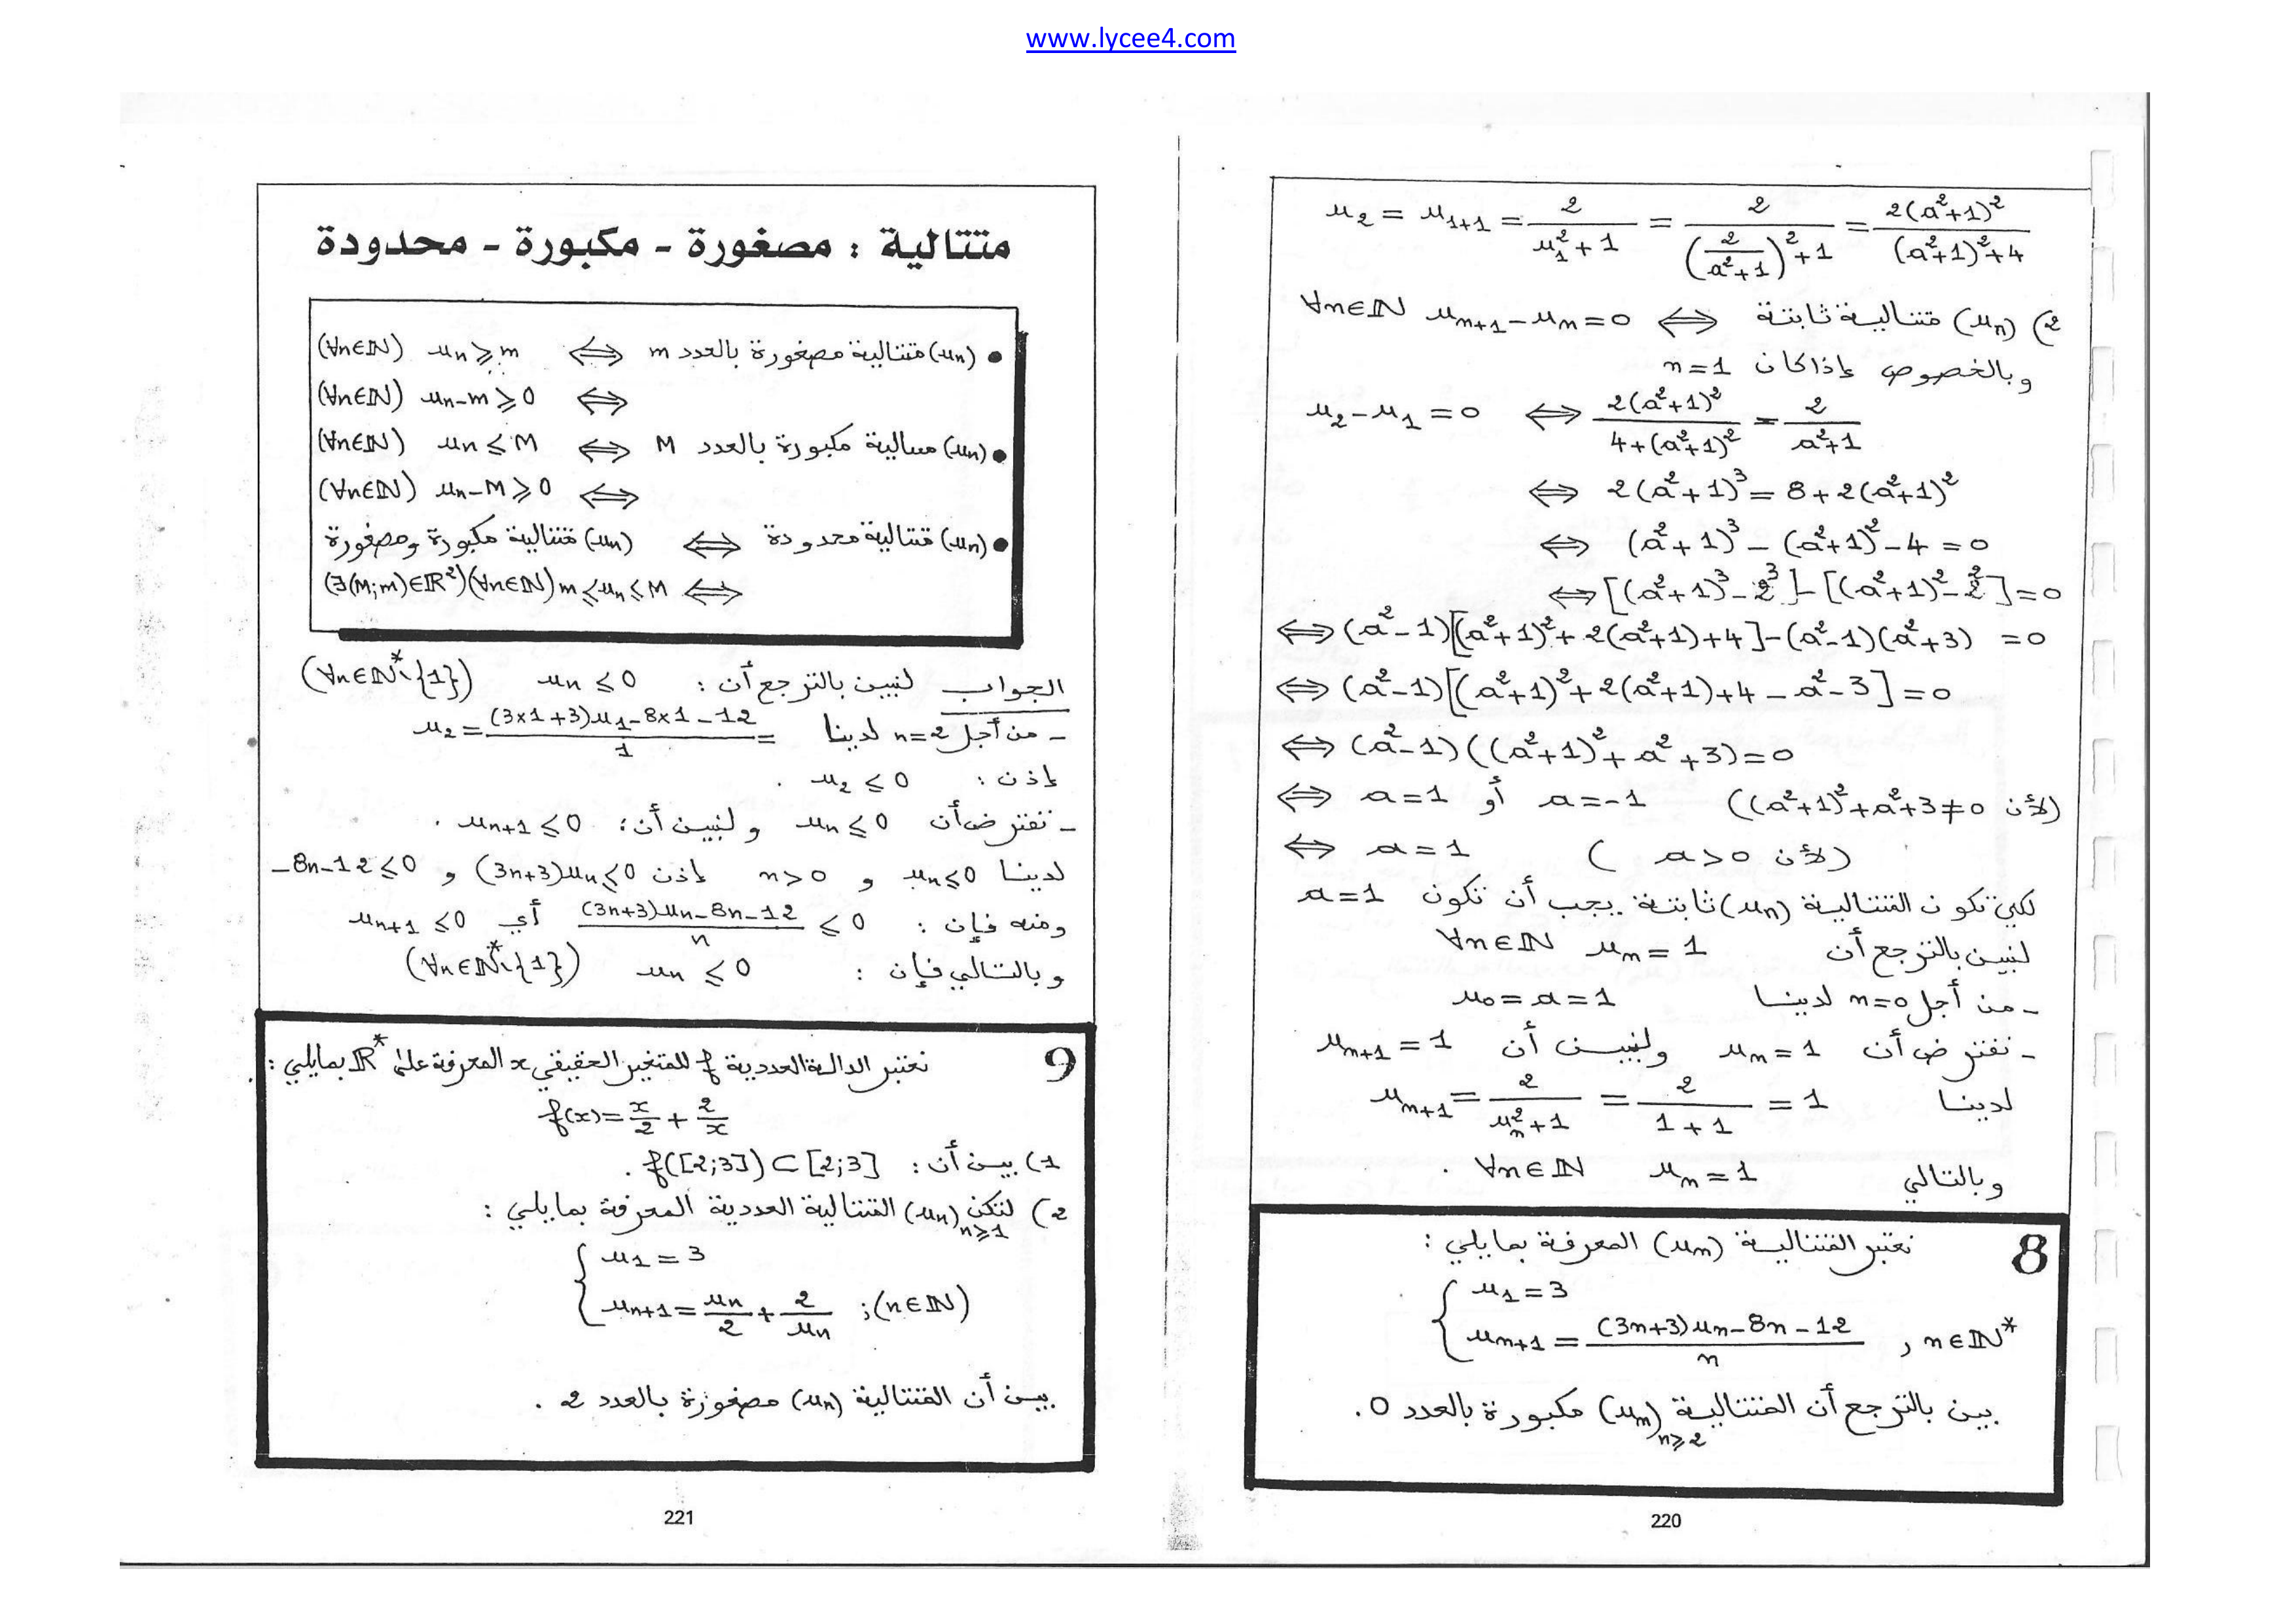 www.lycee4.com
u₂ = u₁₊₁ = 2/(u₁²+1) = 2/((2/(a²+1))²+1) = 2(a²+1)²/((a²+1)²+4)
2) (uₙ) متتالية ثابتة ⟺ ∀n∈ℕ uₙ₊₁ - uₙ = 0
وبالخصوص إذا كان n=1
u₂ - u₁ = 0 ⟺ 2(a²+1)²/(4+(a²+1)²) = 2/(a²+1)
⟺ 2(a²+1)³ = 8+2(a²+1)²
⟺ (a²+1)³ - (a²+1)² - 4 = 0
⟺ [(a²+1)³ - 2³] - [(a²+1)² - 2²] = 0
⟺ (a²-1)[(a²+1)²+2(a²+1)+4] - (a²-1)(a²+3) = 0
⟺ (a²-1)[(a²+1)²+2(a²+1)+4 - a² - 3] = 0
⟺ (a²-1)((a²+1)²+a²+3) = 0
⟺ a=1 أو a=-1 (لأن (a²+1)²+a²+3≠0)
⟺ a=1 (لأن a>0)
لكي تكون المتتالية (uₙ) ثابتة يجب أن تكون a=1
لنبين بالترجع أن ∀n∈ℕ uₙ = 1
- من أجل n=0 لدينا u₀ = a = 1
- نفترض أن uₙ = 1 ولنبين أن uₙ₊₁ = 1
لدينا uₙ₊₁ = 2/(uₙ²+1) = 2/(1+1) = 1
وبالتالي ∀n∈ℕ uₙ = 1 .
8 نعتبر المتتالية (uₙ) المعرفة بمايلي :
{ u₁ = 3
uₙ₊₁ = ((3n+3)uₙ - 8n - 12)/n , n∈ℕ*
بين بالترجع أن المتتالية (uₙ)n⩾2 مكبورة بالعدد 0.
220
متتالية : مصغورة - مكبورة - محدودة
● (uₙ) متتالية مصغورة بالعدد m ⟺ (∀n∈ℕ) uₙ ⩾ m
⟺ (∀n∈ℕ) uₙ - m ⩾ 0
● (uₙ) متتالية مكبورة بالعدد M ⟺ (∀n∈ℕ) uₙ ⩽ M
⟺ (∀n∈ℕ) uₙ - M ⩾ 0
● (uₙ) متتالية محدودة ⟺ (uₙ) متتالية مكبورة ومصغورة
⟺ (∃(M;m)∈ℝ²)(∀n∈ℕ) m ⩽ uₙ ⩽ M
الجواب لنبين بالترجع أن : uₙ ⩽ 0 (∀n∈ℕ*\{1})
- من أجل n=2 لدينا u₂ = ((3x1+3)u₁ - 8x1 - 12)/1 =
إذن : u₂ ⩽ 0 .
- نفترض أن uₙ ⩽ 0 ولنبين أن : uₙ₊₁ ⩽ 0 .
لدينا uₙ ⩽ 0 و n>0 إذن (3n+3)uₙ ⩽ 0 و -8n-12 ⩽ 0
ومنه فإن : ((3n+3)uₙ - 8n - 12)/n ⩽ 0 أي uₙ₊₁ ⩽ 0
وبالتالي فإن : uₙ ⩽ 0 (∀n∈ℕ*\{1})
9 نعتبر الدالة العددية f للمتغير الحقيقي x المعرفة على ℝ* بمايلي :
f(x) = x/2 + 2/x
1) بين أن : f([2;3]) ⊂ [2;3] .
2) لتكن (uₙ)n⩾1 المتتالية العددية المعرفة بمايلي :
{ u₁ = 3
uₙ₊₁ = uₙ/2 + 2/uₙ ; (n∈ℕ)
بين أن المتتالية (uₙ) مصغورة بالعدد 2 .
221